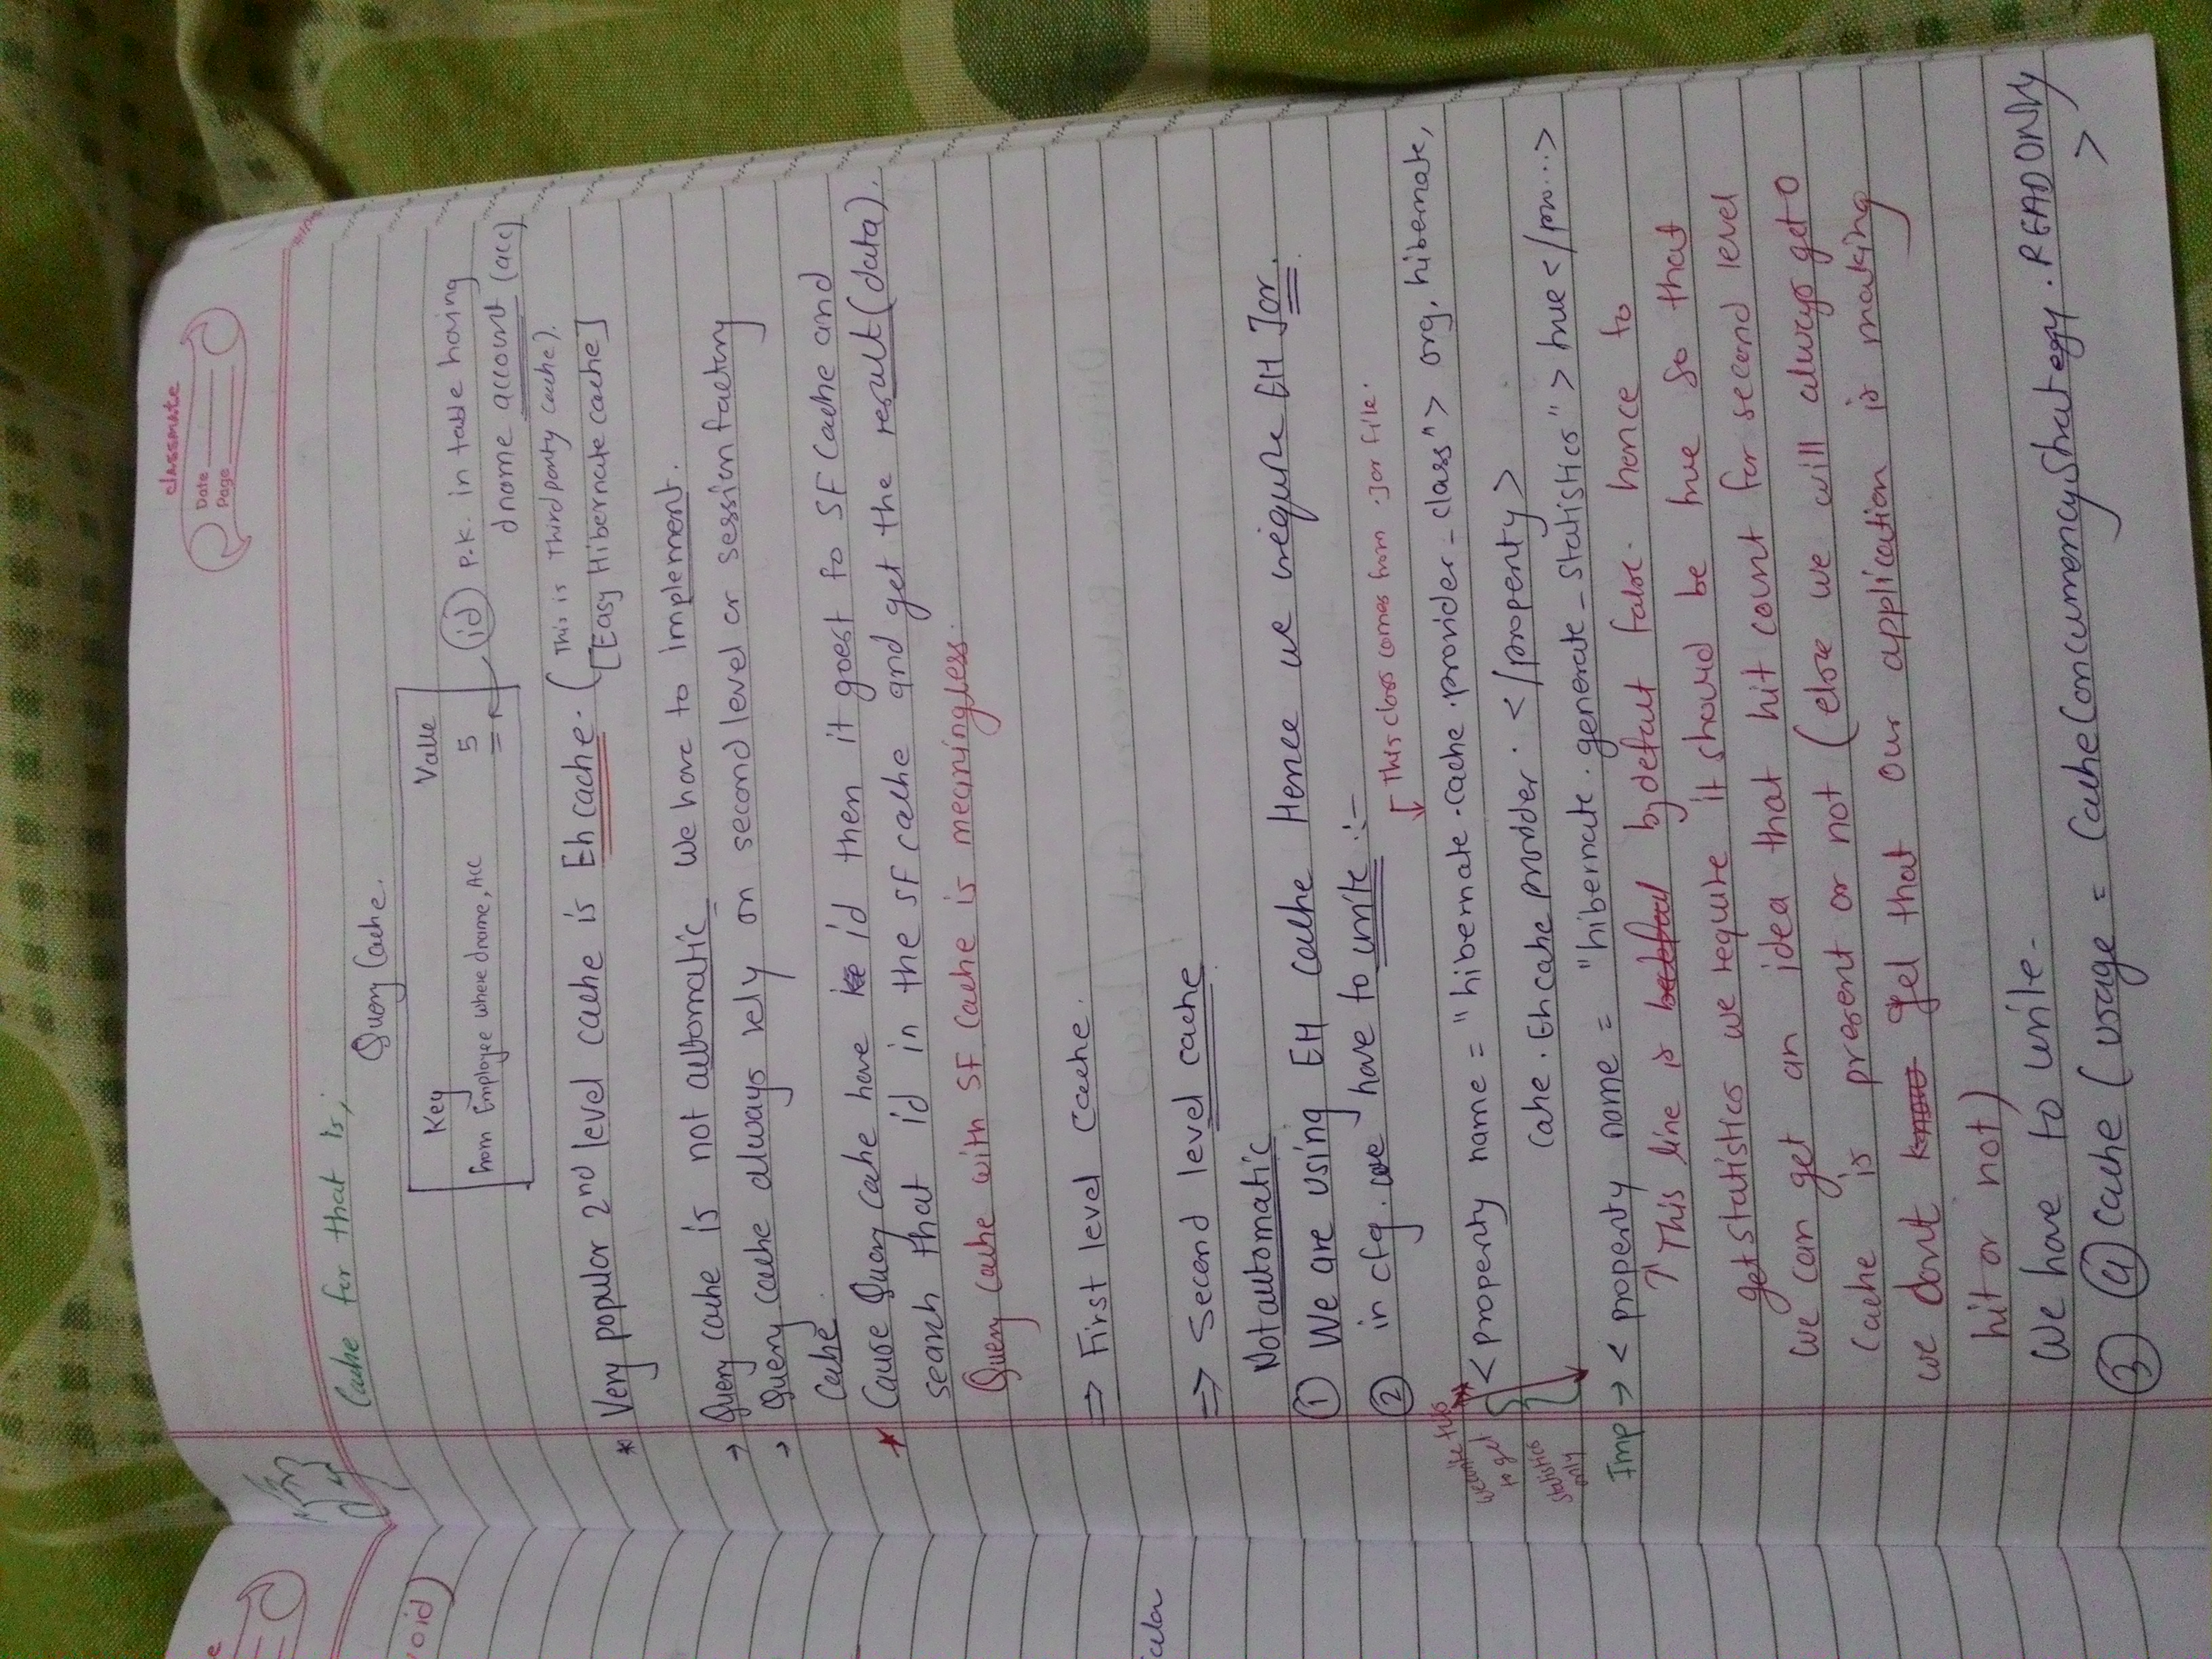 classmate
Date
Page
Cache for that is,
Query Cache.
Key Value
from Employee where dname, Acc 5
id P.K. in table having
dname account (acc)
* Very popular 2nd level cache is Eh cache. (This is Third party cache).
[Easy Hibernate cache]
→ Query cache is not automatic We have to implement.
→ Query cache always rely on second level or session factory
Cache.
* Cause Query cache have id then it goest to SF Cache and
search that id in the SF cache and get the result (data).
Query cache with SF Cache is meaningless.
⇒ First level Cache.
⇒ Second level cache
Not automatic
① We are using EH cache Hence we require EH Jar.
② in cfg. we have to write :-
This class comes from .Jar file.
we write
to get
statistics
only
< property name = "hibernate.cache.provider_class"> org. hibernate,
Cahe. Eh cahe provider. </property>
Imp → < property name = "hibernate.generate_statistics"> true </pro...>
↑ This line is by defalt false. hence to
get statistics we require it should be true so that
we can get an idea that hit count for second level
Cache is present or not (else we will always get 0
we dont know get that our application is making
hit or not)
We have to write-
③ @ cache (usage = CacheConcurrencyStrategy.READONLY
>
oid)